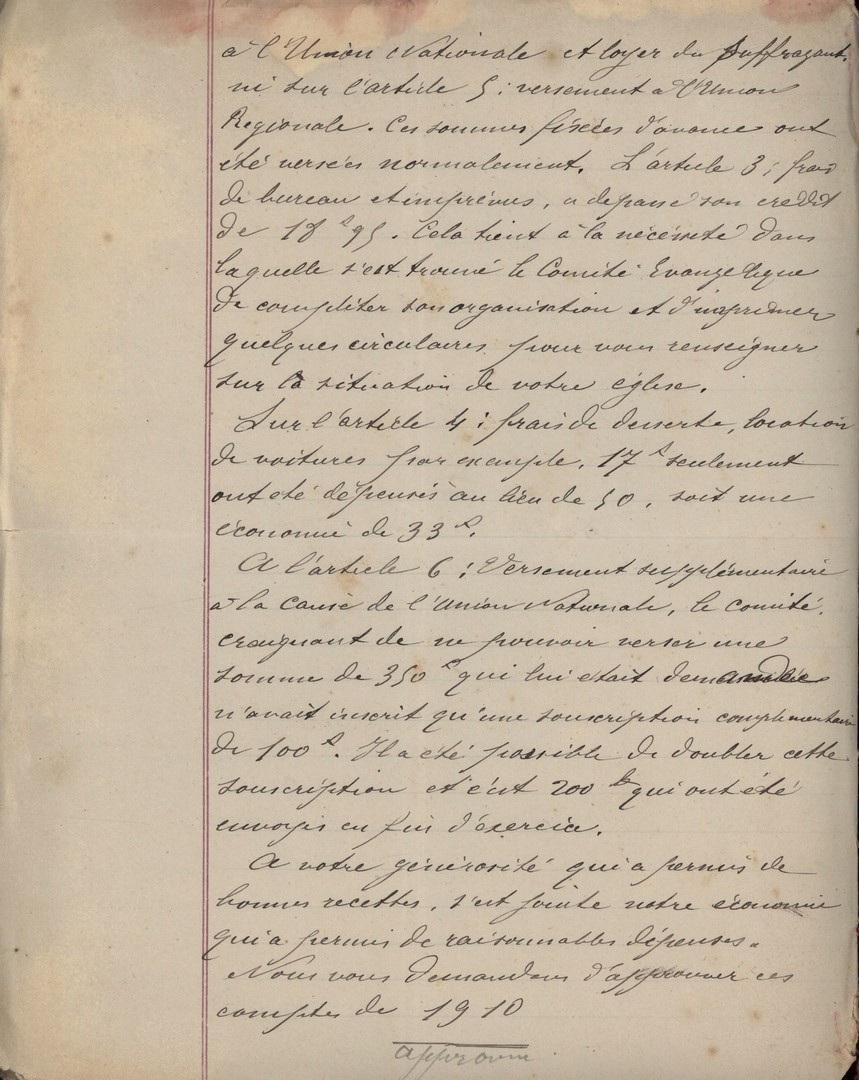 à l'Union Nationale et loyer du Suffragant,
ni sur l'article 5 : versement à l'Union
Régionale. Ces sommes fixées d'avance ont
été versées normalement. L'article 3 ; frais
de bureau et imprévus, a dépassé son crédit
de 18 f 95. Cela tient à la nécessité dans
laquelle s'est trouvé le Comité Evangélique
de compléter son organisation et d'imprimer
quelques circulaires pour vous renseigner
sur la situation de votre église.
Sur l'article 4 : frais de desserte, location
de voitures par exemple, 17 f seulement
ont été dépensés au lieu de 50, soit une
économie de 33 f.
A l'article 6 : Versement supplémentaire
à la caisse de l'Union Nationale, le comité,
craignant de ne pouvoir verser une
somme de 350 f qui lui était demandée
n'avait inscrit qu'une souscription complémentaire
de 100 f. Il a été possible de doubler cette
souscription et c'est 200 fr qui ont été
envoyés en fin d'exercice.
A votre générosité qui a permis de
bonnes recettes, s'est jointe notre économie
qui a permis de raisonnables dépenses.
Nous vous demandons d'approuver ces
comptes de 1910
approuvé